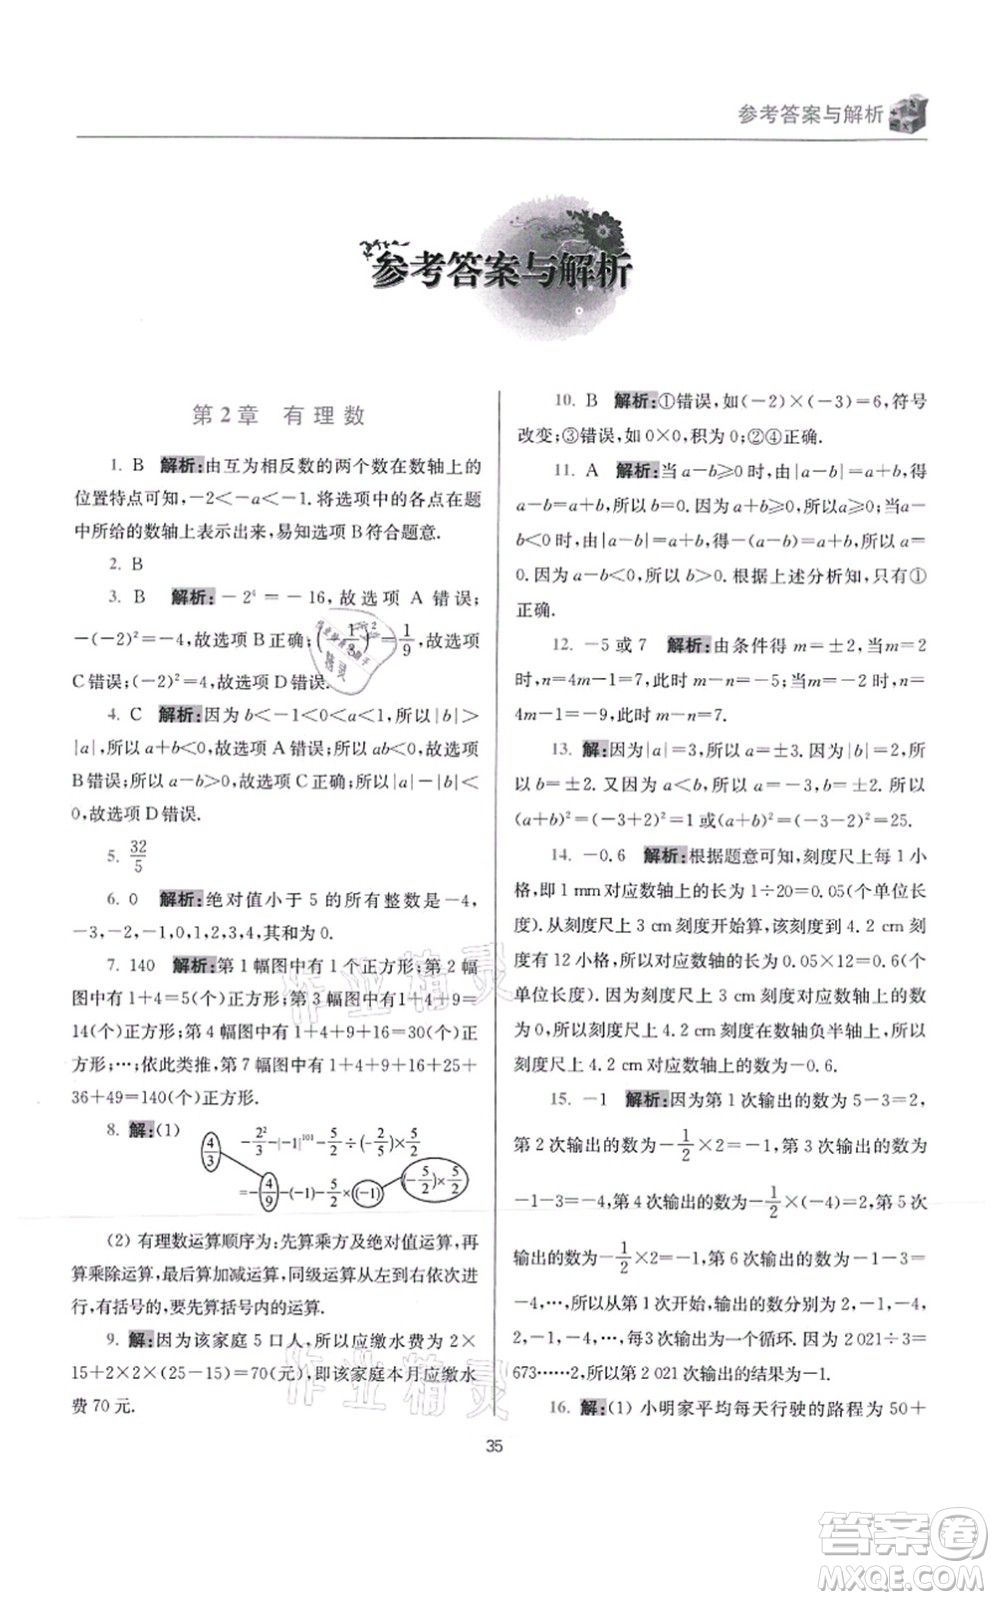 参考答案与解析
参考答案与解析
第2章 有理数
1. B 解析:由互为相反数的两个数在数轴上的
位置特点可知,-2<-a<-1.将选项中的各点在题
中所给的数轴上表示出来,易知选项B符合题意.
2. B
3. B 解析:-2⁴=-16,故选项 A 错误;
-(-2)²=-4,故选项B正确;(-1/3)²=1/9,故选项
C错误;(-2)²=4,故选项D错误.
4. C 解析:因为 b<-1<0<a<1,所以|b|>
|a|,所以 a+b<0,故选项 A 错误;所以 ab<0,故选项
B错误;所以 a-b>0,故选项C正确;所以|a|-|b|<
0,故选项D错误.
5. 32/5
6. 0 解析:绝对值小于 5 的所有整数是-4,
-3,-2,-1,0,1,2,3,4,其和为0.
7. 140 解析:第1幅图中有1个正方形;第2幅
图中有 1+4=5(个)正方形;第3幅图中有1+4+9=
14(个)正方形;第4幅图中有1+4+9+16=30(个)正
方形;…;依此类推,第7幅图中有 1+4+9+16+25+
36+49=140(个)正方形.
8. 解:(1) 4/3 -2²/3-|-1|¹⁰¹-5/2÷(-2/5)×5/2
=-4/9-(-1)-5/2×(-1) (-5/2)×5/2
(2) 有理数运算顺序为:先算乘方及绝对值运算,再
算乘除运算,最后算加减运算,同级运算从左向右依次进
行,有括号的,要先算括号内的运算.
9. 解:因为该家庭 5 口人,所以应缴水费为 2×
15+2×2×(25-15)=70(元),即该家庭本月应缴水
费70元.
10. B 解析:①错误,如(-2)×(-3)=6,符号
改变;③错误,如0×0,积为0;②④正确.
11. A 解析:当 a-b≥0 时,由|a-b|=a+b,得
a-b=a+b,所以 b=0.因为 a+b≥0,所以a≥0;当 a-
b<0 时,由|a-b|=a+b,得-(a-b)=a+b,所以 a=
0.因为 a-b<0,所以 b>0.根据上述分析知,只有①
正确.
12. -5或7 解析:由条件得 m=±2,当 m=2
时,n=4m-1=7,此时 m-n=-5;当m=-2时,n=
4m-1=-9,此时 m-n=7.
13. 解:因为|a|=3,所以 a=±3.因为|b|=2,所
以 b=±2.又因为 a<b,所以 a=-3,b=±2.所以
(a+b)²=(-3+2)²=1或(a+b)²=(-3-2)²=25.
14. -0.6 解析:根据题意可知,刻度尺上每1小
格,即1 mm对应数轴上的长为1÷20=0.05(个单位长
度).从刻度尺上3 cm刻度开始算,该刻度到4.2 cm刻度
有12小格,所以对应数轴的长度为0.05×12=0.6(个
单位长度).因为刻度尺上 3 cm 刻度对应数轴上的数
为0,所以刻度尺上4.2 cm刻度在数轴负半轴上,所以
刻度尺上4.2 cm对应数轴上的数为-0.6.
15. -1 解析:因为第1次输出的数为5-3=2,
第2次输出的数为-1/2×2=-1,第3次输出的数为
-1-3=-4,第4次输出的数为-1/2×(-4)=2,第5次
输出的数为-1/2×2=-1,第6次输出的数为-1-3=
-4,…,所以从第1次开始,输出的数分别为2,-1,-4,
2,-1,-4,…,每3次输出为一个循环.因为2 021÷3=
673……2,所以第2 021次输出的结果为-1.
16. 解:(1) 小明家平均每天行驶的路程为50+
35
作业精灵
作业精灵
答案卷
MXQE.COM